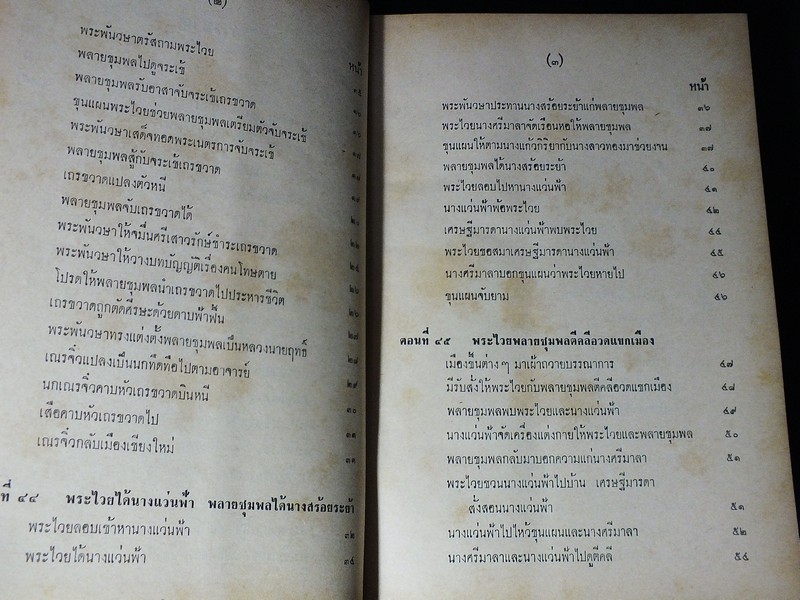 (๒)
หน้า
พระพันวษาตรัสถามพระไวย
พลายชุมพลไปดูจระเข้ ๑๕
พลายชุมพลรับอาสาจับจระเข้เถรขวาด ๑๖
ขุนแผนพระไวยช่วยพลายชุมพลเตรียมตัวจับจระเข้ ๑๖
พระพันวษาเสด็จทอดพระเนตรการจับจระเข้ ๑๗
พลายชุมพลสู้กับจระเข้เถรขวาด
เถรขวาดแปลงตัวหนี
พลายชุมพลจับเถรขวาดได้
พระพันวษาให้จมื่นศรีเสาวรักษ์ชำระเถรขวาด ๒๒
พระพันวษาให้วางบทบัญญัติเรื่องคนโทษตาย ๒๔
โปรดให้พลายชุมพลนำเถรขวาดไปประหารชีวิต
เถรขวาดถูกตัดศีรษะด้วยดาบฟ้าฟื้น
พระพันวษาทรงแต่งตั้งพลายชุมพลเป็นหลวงนายฤทธิ์
เณรจิ๋วแปลงเป็นนกทึดทือไปตามอาจารย์
นกเณรจิ๋วคาบหัวเถรขวาดบินหนี ๒๙
เสือคาบหัวเถรขวาดไป ๓๐
เณรจิ๋วกลับเมืองเชียงใหม่ ๓๑
ที่ ๔๔ พระไวยได้นางแว่นฟ้า พลายชุมพลได้นางสร้อยระย้า
พระไวยลอบเข้าหานางแว่นฟ้า ๓๒
พระไวยได้นางแว่นฟ้า ๓๔
(๓)
หน้า
พระพันวษาประทานนางสร้อยระย้าแก่พลายชุมพล ๓๖
พระไวยนางศรีมาลาจัดเรือนหอให้พลายชุมพล ๓๗
ขุนแผนให้ตามนางแก้วกิริยากับนางลาวทองมาช่วยงาน ๓๗
พลายชุมพลได้นางสร้อยระย้า ๔๐
พระไวยลอบไปหานางแว่นฟ้า ๔๑
นางแว่นฟ้าพ้อพระไวย ๔๒
เศรษฐีมารดานางแว่นฟ้าพบพระไวย ๔๔
พระไวยขอสมาเศรษฐีมารดานางแว่นฟ้า ๔๕
นางศรีมาลาบอกขุนแผนว่าพระไวยหายไป ๔๖
ขุนแผนจับยาม ๔๖
ตอนที่ ๔๕ พระไวยพลายชุมพลตีคลีอวดแขกเมือง
เมืองขึ้นต่างๆ มาเฝ้าถวายบรรณาการ ๔๗
มีรับสั่งให้พระไวยกับพลายชุมพลตีคลีอวดแขกเมือง ๔๘
พลายชุมพลพบพระไวยและนางแว่นฟ้า ๔๙
นางแว่นฟ้าจัดเครื่องแต่งกายให้พระไวยและพลายชุมพล ๕๐
พลายชุมพลกลับมาบอกความแก่นางศรีมาลา ๕๑
พระไวยชวนนางแว่นฟ้าไปบ้าน เศรษฐีมารดา
สั่งสอนนางแว่นฟ้า ๕๑
นางแว่นฟ้าไปไหว้ขุนแผนและนางศรีมาลา ๕๒
นางศรีมาลาและนางแว่นฟ้าไปดูตีคลี ๕๔